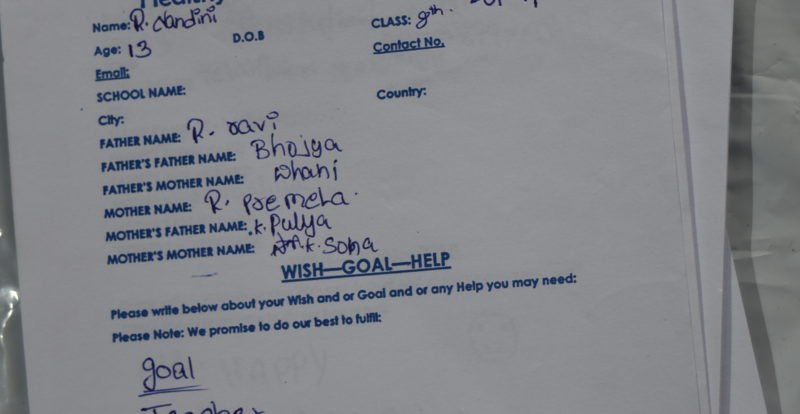 Name: R. Nandini
CLASS: 8th.
Age: 13 D.O.B
Contact No.
Email:
SCHOOL NAME:
Country:
City:
FATHER NAME: R. ravi
FATHER'S FATHER NAME: Bhojya
FATHER'S MOTHER NAME: Dhani
MOTHER NAME: R. Premela.
MOTHER'S FATHER NAME: K. Pulya
MOTHER'S MOTHER NAME: K. Sona
WISH—GOAL—HELP
Please write below about your Wish and or Goal and or any Help you may need:
Please Note: We promise to do our best to fulfil:
goal
Teacher